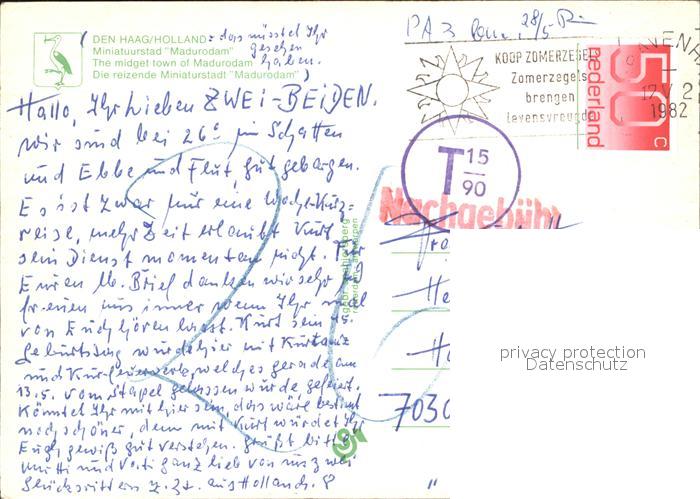 DEN HAAG/HOLLAND = das müsstet Ihr
Miniatuurstad "Madurodam" gesehen
The midget town of Madurodam haben.
Die reizende Miniaturstadt "Madurodam" )
Hallo, Ihr Lieben ZWEI-BEIDEN.
wir sind bei 26° im Schatten
und Ebbe und Flut gut geborgen.
Es ist zwar nur eine Wochen-Kurz=
reise, mehr Zeit erlaubt Kurt
sein Dienst momentan nicht. Für
Euren lb. Brief danken wir sehr und
freuen uns immer wenn Ihr mal
von Euch hören lasst. Kurt sein 45.
Geburtstag wurde hier mit Kurtanz
und Kur-feuerwerk, welches gerade am
13.5. vom Stapel gelassen wurde, gefeiert.
Könntet Ihr mit hier sein, das wäre bestimmt
noch schöner, denn mit Kurt würdet Ihr
Euch gewiß gut verstehen. Grüßt bitte
Mutti und Vati ganz lieb von uns zwei
Glücksrittern z. Zt. aus Holland.
PA 3 28/5
KOOP ZOMERZEGELS
Zomerzegels
brengen
levensvreugde
1982
nederland
50 c
T 15/90
Nachgebühr
26
7030
privacy protection
Datenschutz